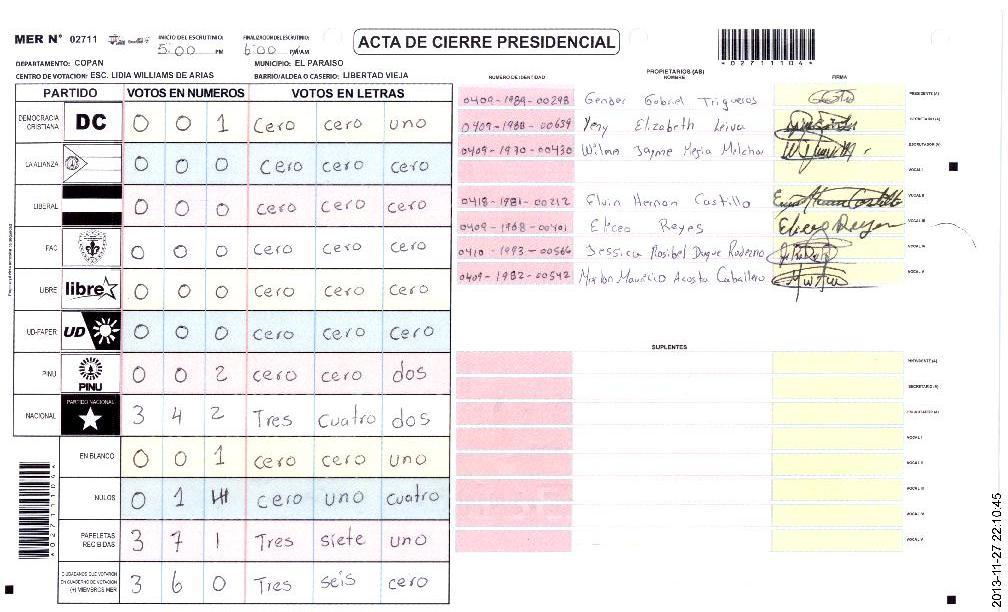 MER N° 02711
INICIO DEL ESCRUTINIO: 5:00 PM
FINALIZACION DEL ESCRUTINIO: 6:00 PM/AM
ACTA DE CIERRE PRESIDENCIAL
*02711104*
DEPARTAMENTO: COPAN MUNICIPIO: EL PARAISO
CENTRO DE VOTACION: ESC. LIDIA WILLIAMS DE ARIAS BARRIO/ALDEA O CASERIO: LIBERTAD VIEJA
PARTIDO VOTOS EN NUMEROS VOTOS EN LETRAS
DEMOCRACIA CRISTIANA DC 0 0 1 Cero cero uno
LA ALIANZA 0 0 0 Cero cero cero
LIBERAL 0 0 0 cero cero cero
FAC 0 0 0 cero cero cero
LIBRE libre 0 0 0 Cero cero cero
UD-FAPER UD 0 0 0 cero cero cero
PINU PINU 0 0 2 cero cero dos
NACIONAL PARTIDO NACIONAL 3 4 2 Tres cuatro dos
EN BLANCO 0 0 1 cero cero uno
NULOS 0 1 cero uno cuatro
PAPELETAS RECIBIDAS 3 7 1 Tres siete uno
CIUDADANOS QUE VOTARON EN CUADERNO DE VOTACION (+) MIEMBROS MER 3 6 0 Tres seis cero
PROPIETARIOS (AS)
NUMERO DE IDENTIDAD NOMBRE FIRMA
0409-1989-00298 Gender Gabriel Trigueros PRESIDENTE (A)
0409-1988-00639 Yeny Elizabeth Leiva SECRETARIO (A)
0409-1970-00430 Wilma Jayme Mejia Melchor ESCRUTADOR (A)
VOCAL I
0418-1981-00212 Elvin Hernan Castillo VOCAL II
0409-1968-00401 Eliceo Reyes Eliceo Reyes VOCAL III
0410-1993-00566 Jessica Rosibel Duque VOCAL IV
0409-1982-00542 Marlon Mauricio Acosta Caballero VOCAL V
SUPLENTES
PRESIDENTE (A)
SECRETARIO (A)
ESCRUTADOR (A)
VOCAL I
VOCAL II
VOCAL III
VOCAL IV
VOCAL V
*02711104*
2013-11-27 22:10:45